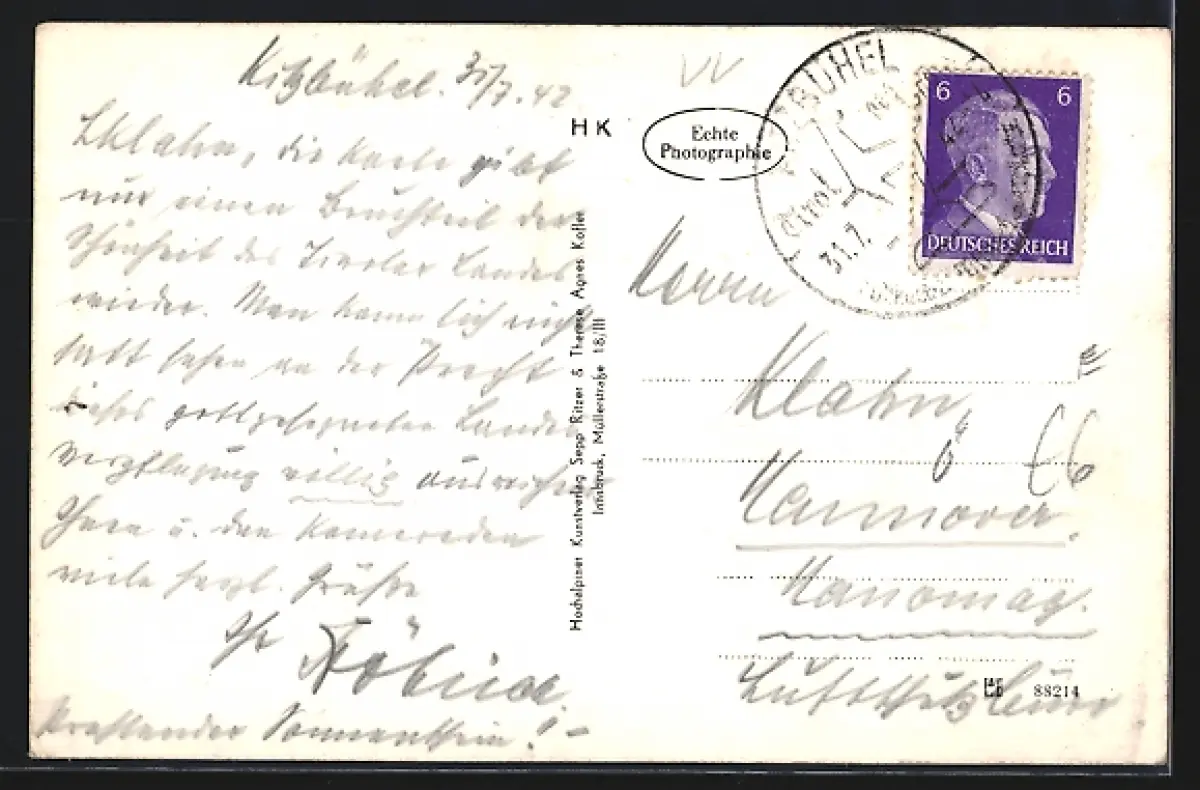 Kitzbühel. 31/7. 42
LKlahn, die Karte gibt
nur einen Bruchteil der
Schönheit des Tiroler Landes
wieder. Man kann sich nicht
satt sehen an der Pracht
dieses gottgesegneten Landes
Verpflegung völlig ausreichend
Ihnen u. den Kameraden
viele herzl. Grüße
Ihr
Strahlender Sonnenschein!
HK
Echte
Photographie
Hochalpiner Kunstverlag Sepp Ritzer & Therese Agnes Kofler
Innsbruck, Müllerstraße 18/III
KITZBÜHEL
Tirol
31.7.
6 6
DEUTSCHES REICH
Herrn
Klahn,
Hannover,
Hanomag.
Luftschutzbüro
88214